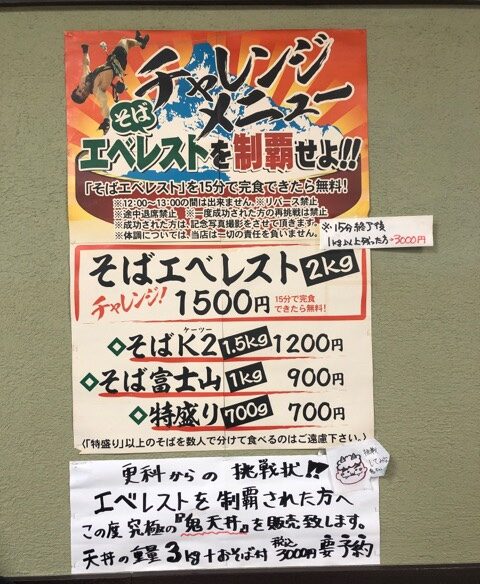 チャレンジ
メニュー
そば
エベレストを制覇せよ!!
「そばエベレスト」を15分で完食できたら無料!
※12:00〜13:00の間は出来ません。※リバース禁止
※途中退席禁止 ※一度成功された方の再挑戦は禁止
※成功された方は、記念写真撮影をさせて頂きます。
※体調については、当店は一切の責任を負いません。
※15分終了後
1kg以上残った方→3000円
そばエベレスト2kg
チャレンジ!
1500円
15分で完食
できたら無料!
ケーツー
◇そばK2 1.5kg 1200円
◇そば富士山 1kg 900円
◇特盛り 700g 700円
〈「特盛り」以上のそばを数人で分けて食べるのはご遠慮下さい。〉
更科からの挑戦状!!
エベレストを制覇された方へ
この度究極の『鬼天丼』を販売致します。
天丼の重量3kg+おそば付 税込3000円 要予約